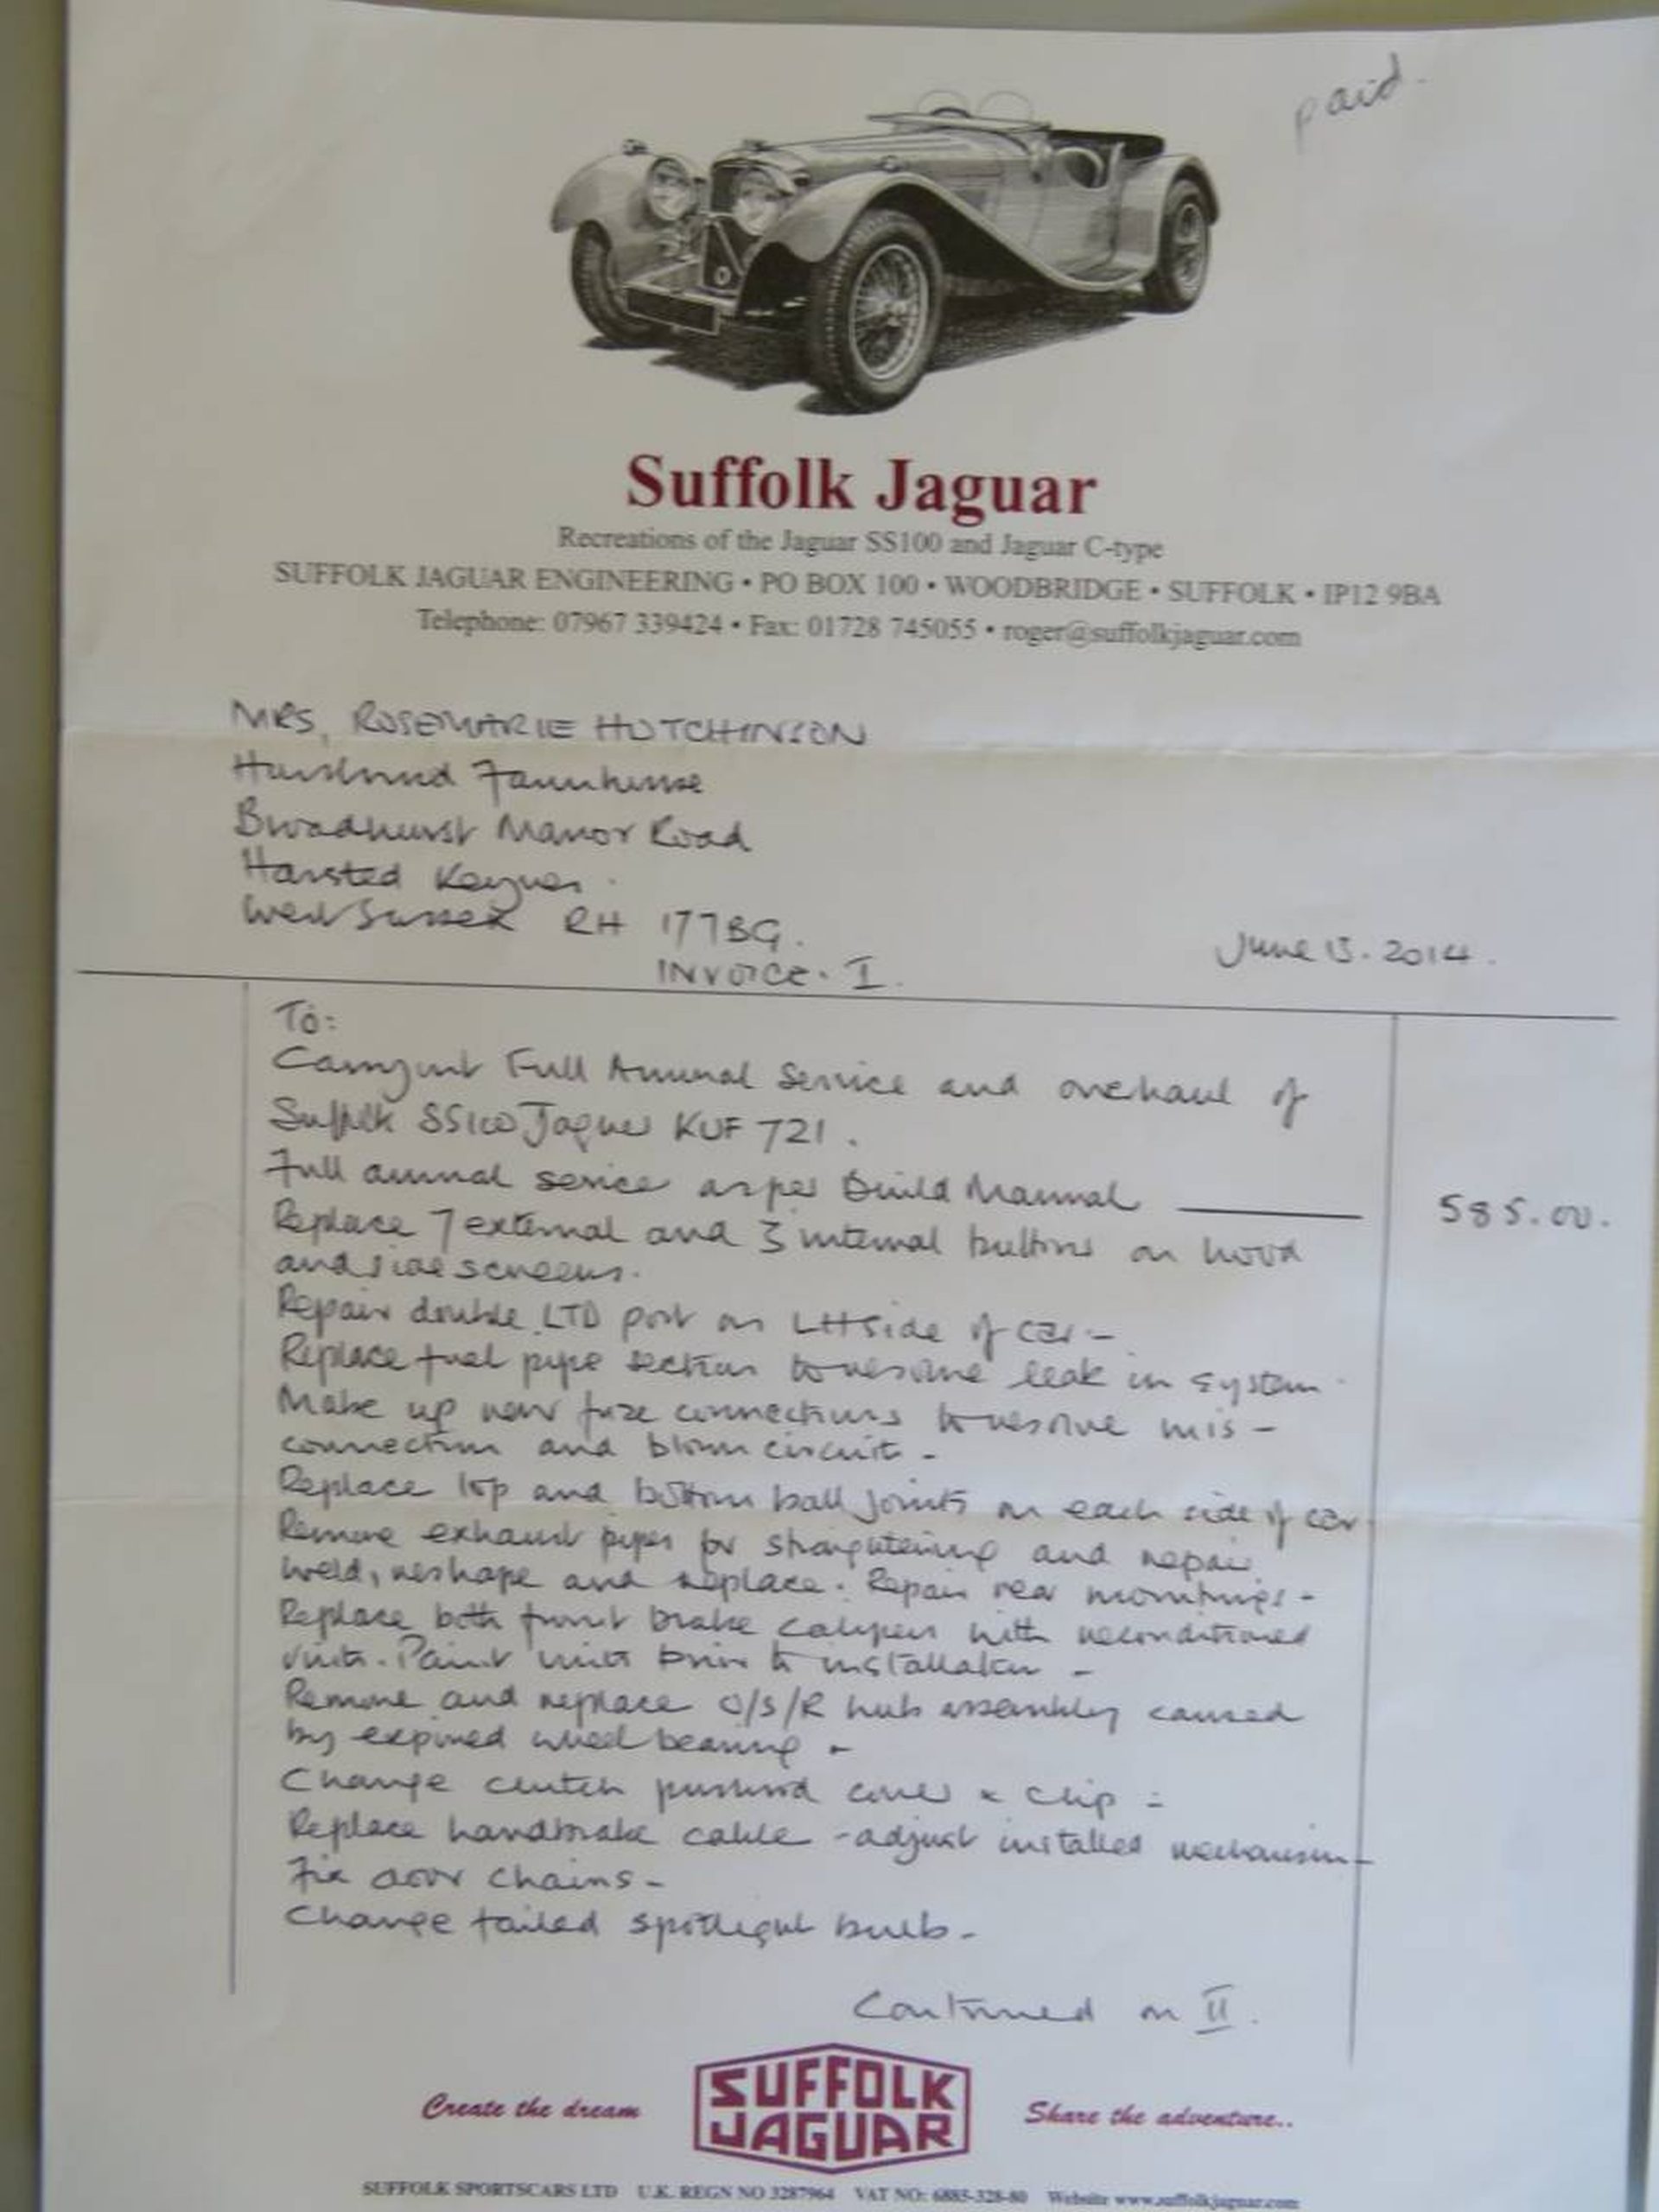 paid.
Suffolk Jaguar
Recreations of the Jaguar SS100 and Jaguar C-type
SUFFOLK JAGUAR ENGINEERING • PO BOX 100 • WOODBRIDGE • SUFFOLK • IP12 9BA
Telephone: 07967 339424 • Fax: 01728 745055 • roger@suffolkjaguar.com
MRS. ROSEMARIE HUTCHINSON
Farmhouse
Broadhurst Manor Road
Horsted Keynes.
West Sussex RH 177BG.
INVOICE. I.
June 15. 2014.
To:
Carry out Full Annual Service and overhaul of
Suffolk SS100 Jaguar KUF 721.
Full annual service as per Build Manual
585.00.
Replace 7 external and 3 internal buttons on hood
and side screens.
Repair double LTD post on LH side of car -
Replace fuel pipe section to resolve leak in system
Make up new fuse connections to resolve mis-
connection and blown circuit -
Replace top and bottom ball joints on each side of car
Remove exhaust pipes for straightening and repair
weld, reshape and replace. Repair rear mountings -
Replace both front brake calipers with reconditioned
units. Paint units prior to installation -
Remove and replace O/S/R hub assembly caused
by expired wheel bearing -
Change clutch pushrod cover & clip -
Replace handbrake cable - adjust installed mechanism -
Fix door chains -
Change failed spotlight bulb -
Continued on II.
Create the dream
SUFFOLK
JAGUAR
Share the adventure..
SUFFOLK SPORTSCARS LTD U.K. REGN NO 3287964 VAT NO: 6885-328-80 Website www.suffolkjaguar.com